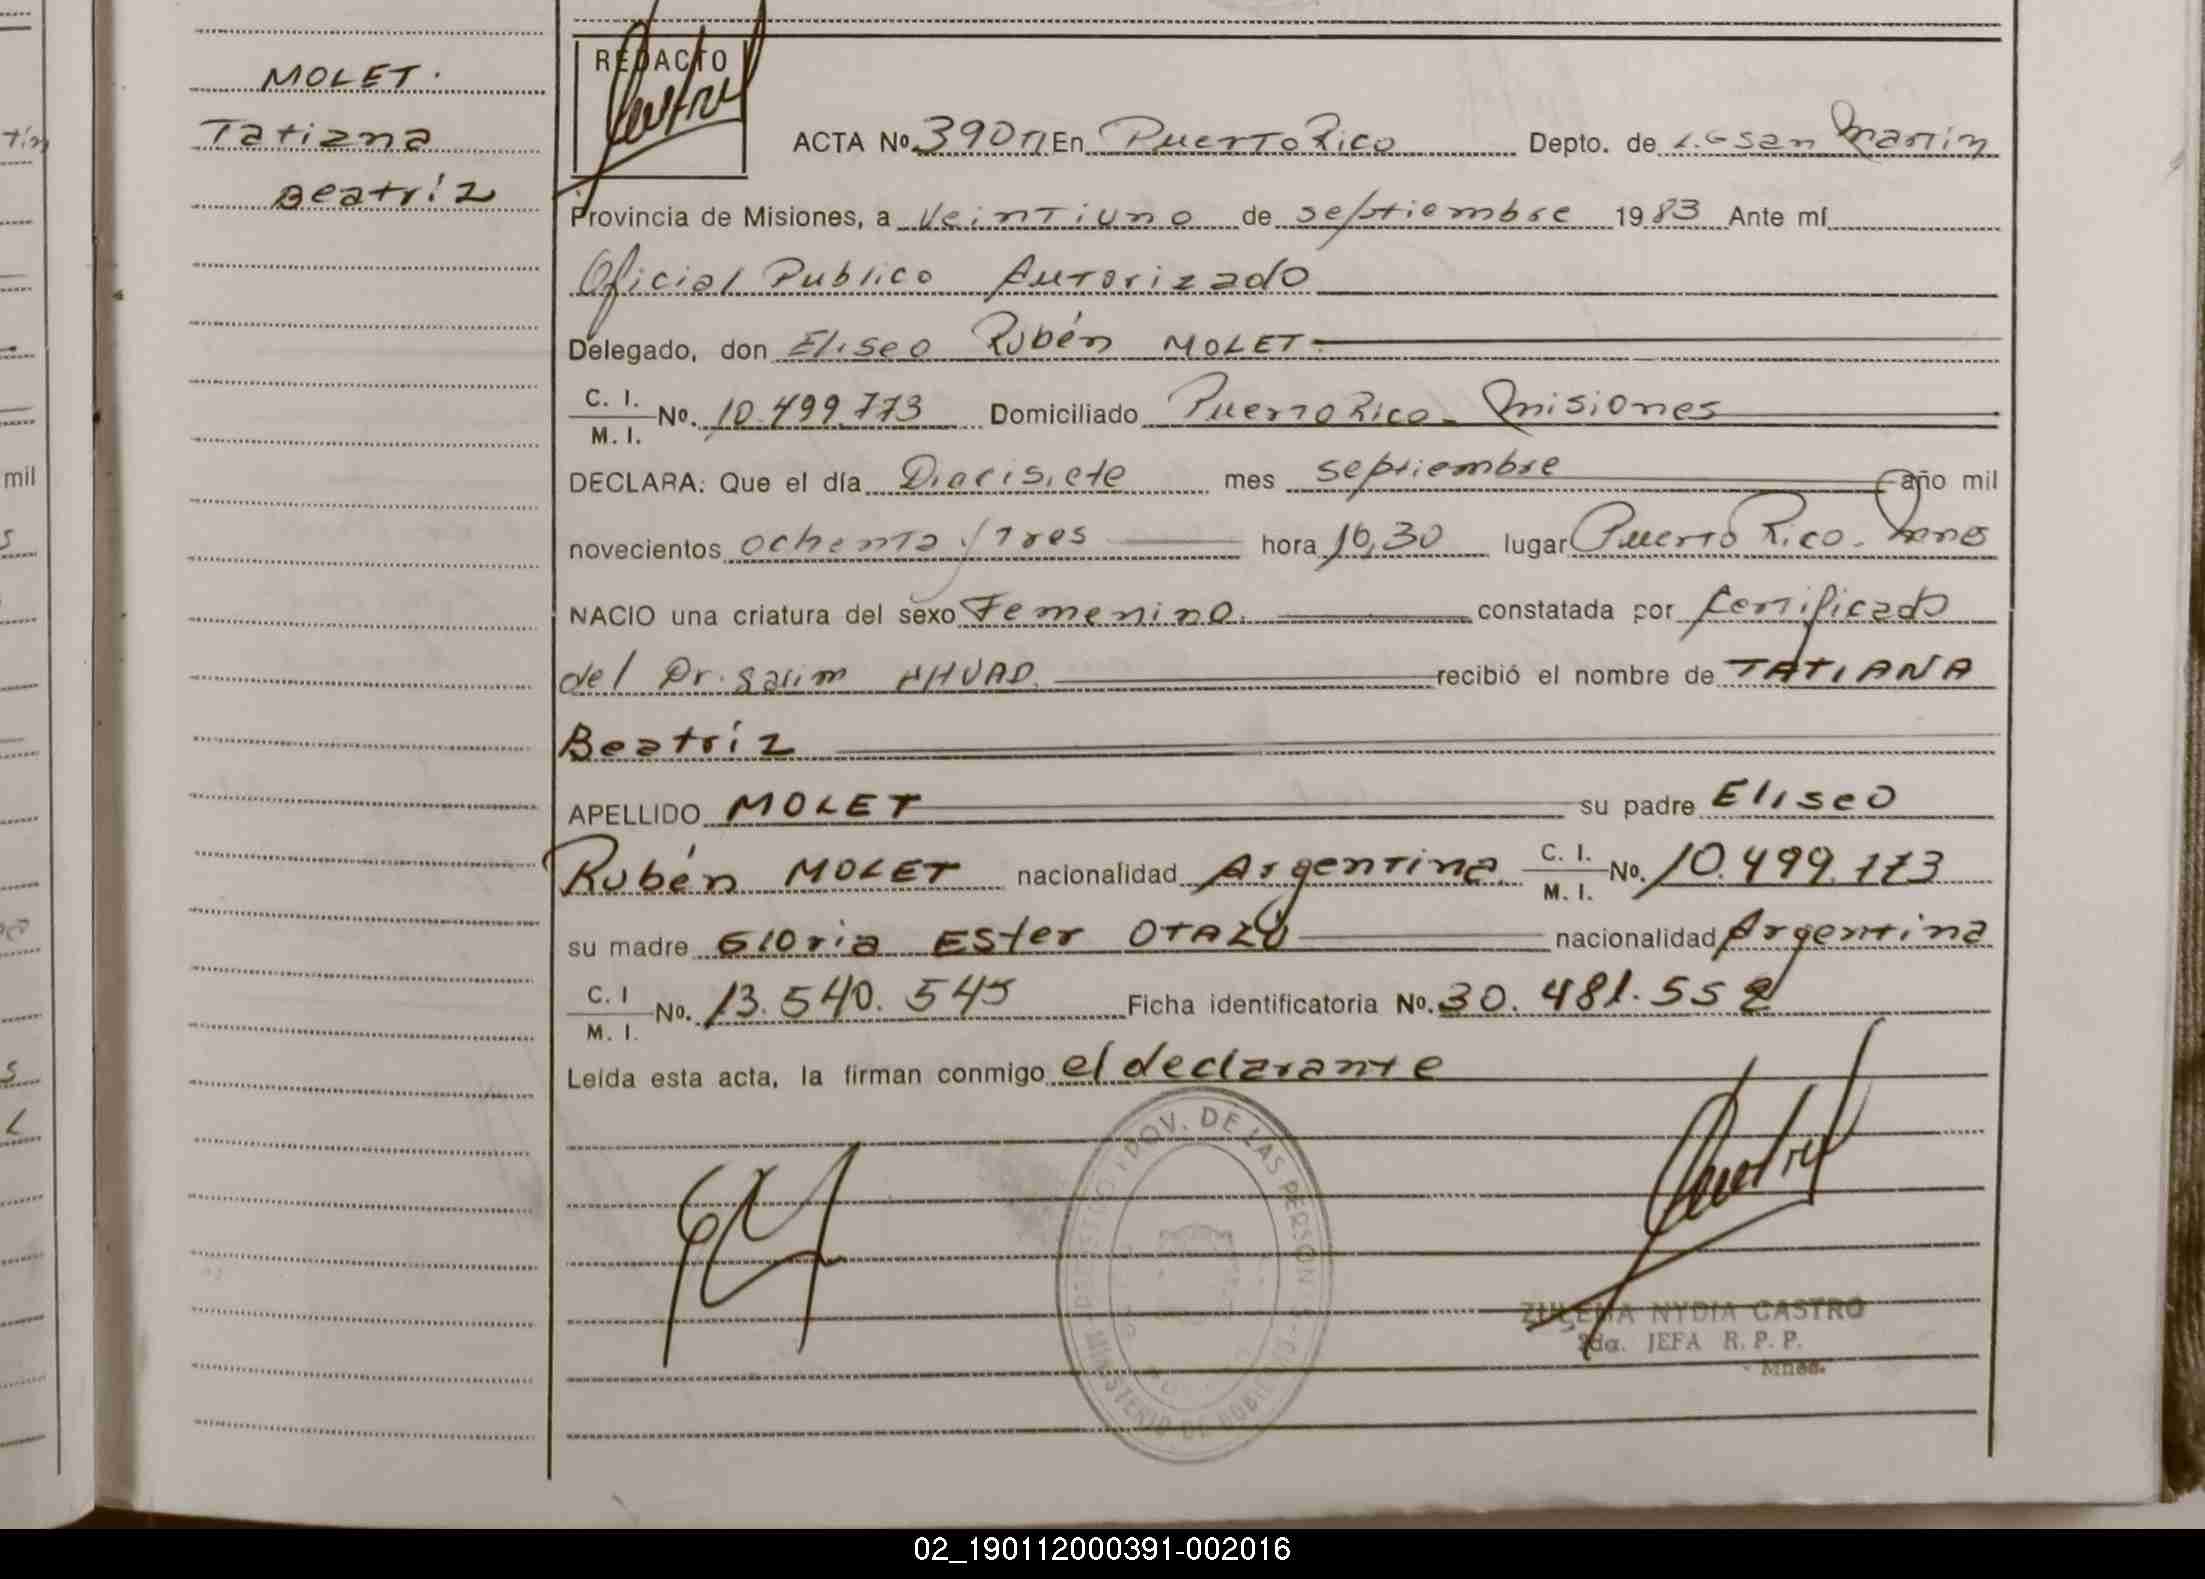 MOLET.
Tatiana
Beatríz
REDACTO
ACTA Nº 390 En Puerto Rico Depto. de L.G San Martín
Provincia de Misiones, a Veintiuno de septiembre 1983 Ante mí
Oficial Publico Autorizado
Delegado, don Eliseo Rubén MOLET
C. I.
M. I. Nº. 10.499.773 Domiciliado Puerto Rico - Misiones
DECLARA: Que el día Diecisiete mes septiembre año mil
novecientos ochenta y tres hora 16,30 lugar Puerto Rico - Mnes
NACIO una criatura del sexo Femenino. constatada por Certificado
del Dr. Salim AHUAD. recibió el nombre de TATIANA
Beatríz
APELLIDO MOLET su padre Eliseo
Rubén MOLET nacionalidad Argentina C. I.
M. I. Nº. 10.499.773
su madre Gloria Ester OTAZÚ nacionalidad Argentina
C. I
M. I. Nº. 13.540.545 Ficha identificatoria Nº. 30.481.552
Leída esta acta, la firman conmigo el declarante
PROV. DE LAS PERSONAS
MINISTERIO DE GOBIERNO
ZULEMA NYDIA CASTRO
2da. JEFA R. P. P.
Mnes.
mil
02_190112000391-002016